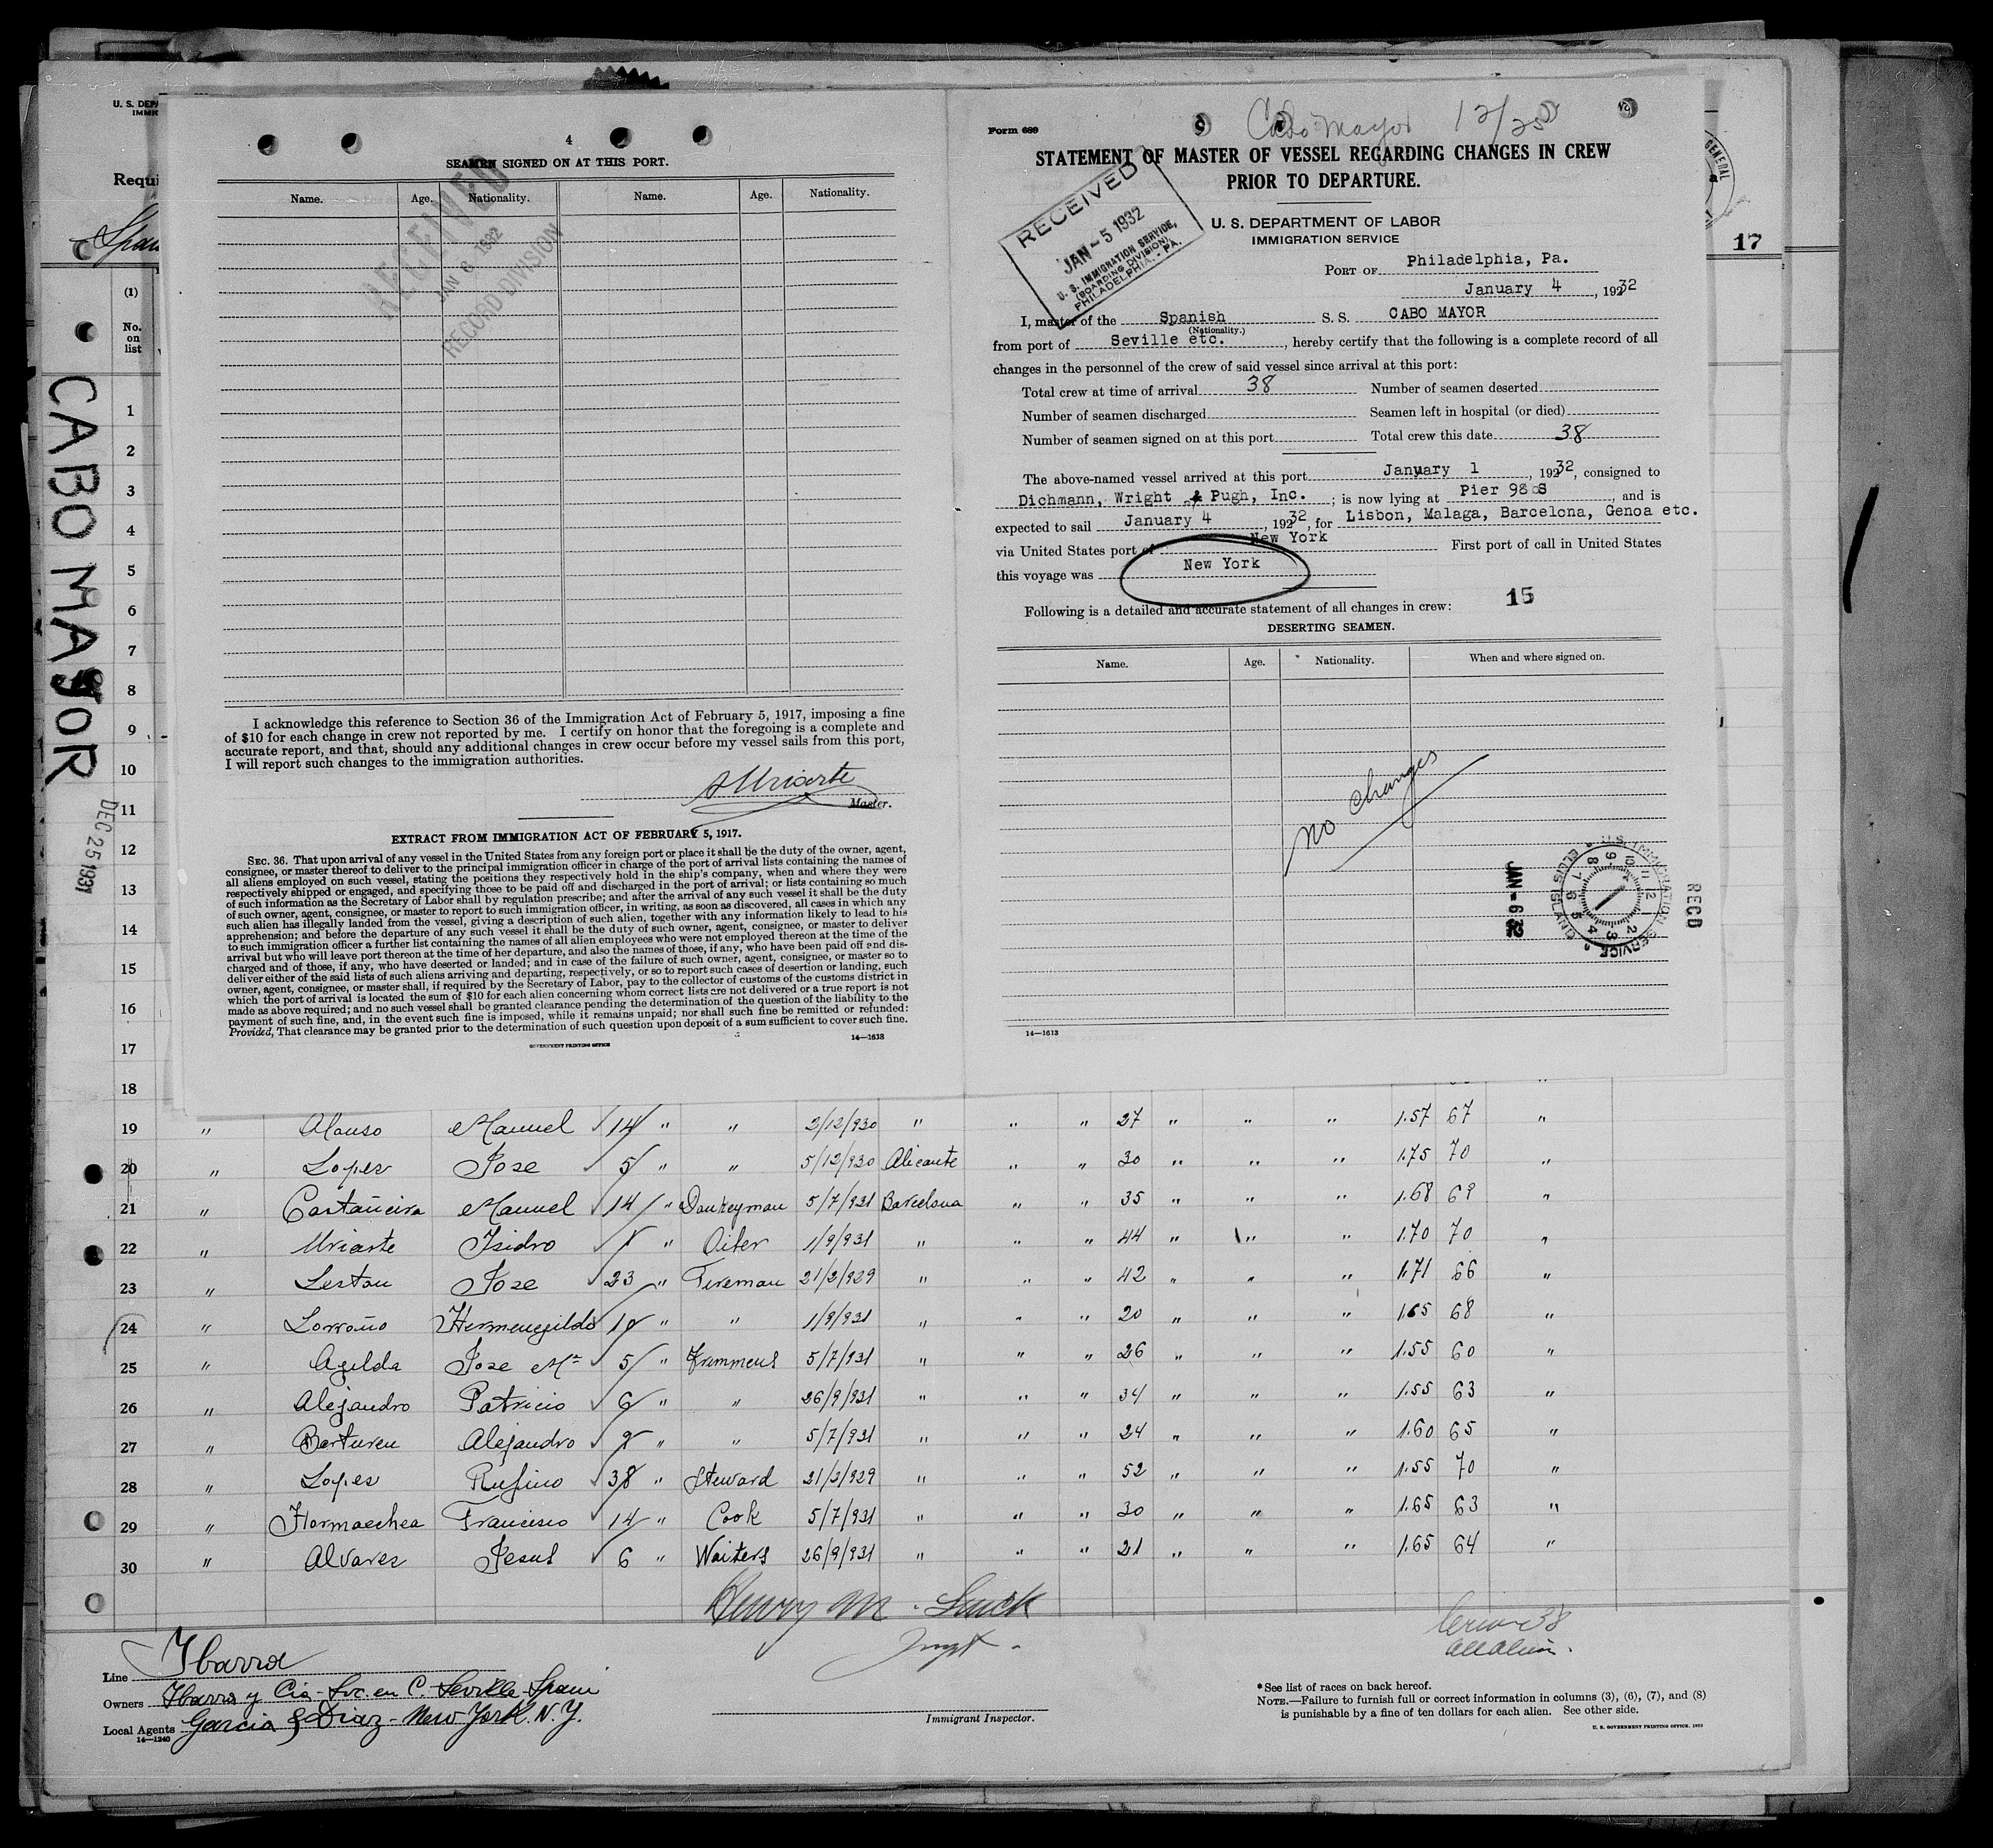 U. S. DEPA
IMMIG
Requi
Span
(1)
No.
on
list
CABO MAYOR
DEC 25 1931
17
4
SEAMEN SIGNED ON AT THIS PORT.
Name. Age. Nationality. Name. Age. Nationality.
RECEIVED
JAN 6 1932
RECORD DIVISION
I acknowledge this reference to Section 36 of the Immigration Act of February 5, 1917, imposing a fine
of $10 for each change in crew not reported by me. I certify on honor that the foregoing is a complete and
accurate report, and that, should any additional changes in crew occur before my vessel sails from this port,
I will report such changes to the immigration authorities.
Uriarte
Master.
EXTRACT FROM IMMIGRATION ACT OF FEBRUARY 5, 1917.
SEC. 36. That upon arrival of any vessel in the United States from any foreign port or place it shall be the duty of the owner, agent,
consignee, or master thereof to deliver to the principal immigration officer in charge of the port of arrival lists containing the names of
all aliens employed on such vessel, stating the positions they respectively hold in the ship's company, when and where they were
respectively shipped or engaged, and specifying those to be paid off and discharged in the port of arrival; or lists containing so much
of such information as the Secretary of Labor shall by regulation prescribe; and after the arrival of any such vessel it shall be the duty
of such owner, agent, consignee, or master to report to such immigration officer, in writing, as soon as discovered, all cases in which any
such alien has illegally landed from the vessel, giving a description of such alien, together with any information likely to lead to his
apprehension; and before the departure of any such vessel it shall be the duty of such owner, agent, consignee, or master to deliver
to such immigration officer a further list containing the names of all alien employees who were not employed thereon at the time of the
arrival but who will leave port thereon at the time of her departure, and also the names of those, if any, who have been paid off and dis-
charged and of those, if any, who have deserted or landed; and in case of the failure of such owner, agent, consignee, or master so to
deliver either of the said lists of such aliens arriving and departing, respectively, or so to report such cases of desertion or landing, such
owner, agent, consignee, or master shall, if required by the Secretary of Labor, pay to the collector of customs of the customs district in
which the port of arrival is located the sum of $10 for each alien concerning whom correct lists are not delivered or a true report is not
made as above required; and no such vessel shall be granted clearance pending the determination of the question of the liability to the
payment of such fine, and, in the event such fine is imposed, while it remains unpaid; nor shall such fine be remitted or refunded:
Provided, That clearance may be granted prior to the determination of such question upon deposit of a sum sufficient to cover such fine.
GOVERNMENT PRINTING OFFICE 14—1613
Form 689
Cabo Mayor 12/25
STATEMENT OF MASTER OF VESSEL REGARDING CHANGES IN CREW
PRIOR TO DEPARTURE.
RECEIVED
JAN - 5 1932
U. S. IMMIGRATION SERVICE,
(BOARDING DIVISION)
PHILADELPHIA, - PA.
U. S. DEPARTMENT OF LABOR
IMMIGRATION SERVICE
PORT OF Philadelphia, Pa.
January 4, 1932
I, master of the Spanish S. S. CABO MAYOR
(Nationality.)
from port of Seville etc., hereby certify that the following is a complete record of all
changes in the personnel of the crew of said vessel since arrival at this port:
Total crew at time of arrival 38 Number of seamen deserted
Number of seamen discharged Seamen left in hospital (or died)
Number of seamen signed on at this port Total crew this date 38
The above-named vessel arrived at this port January 1, 1932, consigned to
Dichmann, Wright & Pugh, Inc.; is now lying at Pier 98 S, and is
expected to sail January 4, 1932, for Lisbon, Malaga, Barcelona, Genoa etc.
via United States port of New York First port of call in United States
this voyage was New York
Following is a detailed and accurate statement of all changes in crew: 15
DESERTING SEAMEN.
Name. Age. Nationality. When and where signed on.
no changes
JAN - 6 32
U.S. IMMIGRATION SERVICE
ELLIS ISLAND
RECD
14—1613
1
2
3
4
5
6
7
8
9
10
11
12
13
14
15
16
17
18
19 " Alonso Manuel 14 " " 2/12/930 " " " 27 " " " 1.57 67 "
20 " Lopez Jose 5 " " 5/12/930 Alicante " " 30 " " " 1.75 70 "
21 " Castañeira Manuel 14 " Donkeyman 5/7/931 Barcelona " " 35 " " " 1.68 69 "
22 " Uriarte Isidro 1 " Oiler 1/9/931 " " " 44 " " " 1.70 70 "
23 " Lestau Jose 23 " Fireman 21/2/929 " " " 42 " " " 1.71 66 "
24 " Lorroño Hermenegildo 10 " " 1/9/931 " " " 20 " " " 1.65 68 "
25 " Agilda Jose Mª 5 " Trimmers 5/7/931 " " " 26 " " " 1.55 60 "
26 " Alejandro Patricio 6 " " 26/9/931 " " " 34 " " " 1.55 63 "
27 " Barturen Alejandro 9 " " 5/7/931 " " " 24 " " " 1.60 65 "
28 " Lopez Rufino 38 " Steward 21/2/929 " " " 52 " " " 1.55 70 "
29 " Hormaechea Francisco 14 " Cook 5/7/931 " " " 30 " " " 1.65 63 "
30 " Alvarez Jesus 6 " Waiters 26/9/931 " " " 21 " " " 1.65 64 "
Henry M.
Inspt.
Crew 38
all alien.
Line Ibarra
Owners Ibarra y Cia - Soc. en C. Seville - Spain
Local Agents Garcia & Diaz - New York. N.Y.
14—1240
Immigrant Inspector.
*See list of races on back hereof.
NOTE.—Failure to furnish full or correct information in columns (3), (6), (7), and (8)
is punishable by a fine of ten dollars for each alien. See other side.
U. S. GOVERNMENT PRINTING OFFICE